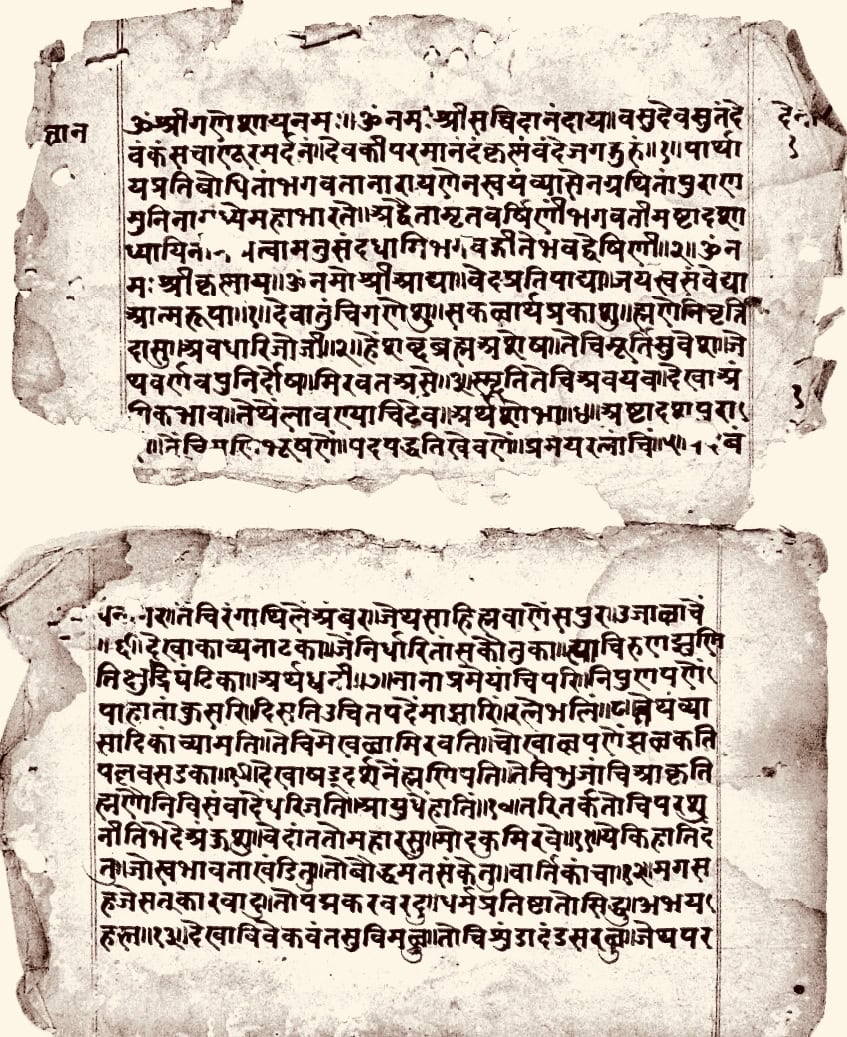 ज्ञान
देव
१
ॐश्रीगणेशायनमः॥ॐनमःश्रीसच्चिदानंदाय॥वसुदेवसुतंदे
वंकंसचाणूरमर्दनं॥देवकीपरमानंदंकृस्लंवंदेजगद्गुरुं॥१॥पार्था
यप्रतिबोधितांभगवतानारायणेनस्वयंव्यासेनग्रथितांपुराण
मुनिनामध्येमहाभारते॥अद्वैतामृतवर्षिणींभगवतीमष्टादशा
ध्यायिनीं त्वामनुसंदधामिभगवद्गीतेभवद्वेषिणी॥२॥ॐन
मःश्रीकृस्लाय॥ॐनमोश्रीआद्या॥वेदप्रतिपाद्या॥जयस्वसंवेद्या
आत्मरूपा॥१॥देवातुंचिगणेशु॥सकळार्थप्रकाशु॥ह्मणेनिवृत्ति
दासु॥अवधारिजोजी॥२॥हेंशब्दब्रह्मअशेष॥तेचिमूर्तिसुवेश॥जे
थवर्णवपुनिर्दोष॥मिरवतअसे॥३॥स्मृतितेचिअवयव॥देखाअं
गिकभाव॥तेथेंलावण्याचिठेव॥अर्थशोभा॥४॥अष्टादशपुरा
॥तेचिमणिभूषणें॥पदपद्धतिखेवणें॥प्रमेयरत्नांचिं॥५॥पदबं
१
नागर॥तेंचिरंगाथिलेंअंबर॥जेथसाहित्यवाणेंसपुर॥उजाळाचें
॥६॥देखाकाव्यनाटका॥जेंनिर्धारितांसकौतुका॥त्याचिरुणझुणि
तिक्षुद्रघंटिका॥अर्थधनी॥७॥नानाप्रमेयांचिपरि॥निपुणपणें
पाहातांकुसरि॥दिसतिउचितपदेंमाझारि॥रत्नेंभलिं॥८॥तेथंव्या
सादिकांच्यामति॥तेचिमेखळामिरवति॥चोखाळपणेंझळकति
पलवसडका॥९॥देखाषड्दर्शनेंह्मणिपति॥तेचिभुजांचिआकृति
ह्मणौनिविसंवादेंधरिजति॥आयुधेंहाति॥१०॥तरितर्कतोचिपरशु
नीतिभेदेअंकुशु॥वेदांततोमहारसु॥मोदकुमिरवे॥११॥येकिहातिदं
तु॥जोस्वभावताखंडितु॥तोबौद्धमतसंकेतु॥वार्तिकांचा॥१२॥मगस
हजेंसतकारवादु॥तोपद्मकरवरदु॥धर्मप्रतिष्ठातोसिद्धु॥अभय
हस्त॥१३॥देखाविवेकवंतसुविमळु॥तोचिशुंडादंडसरळु॥जेथपर